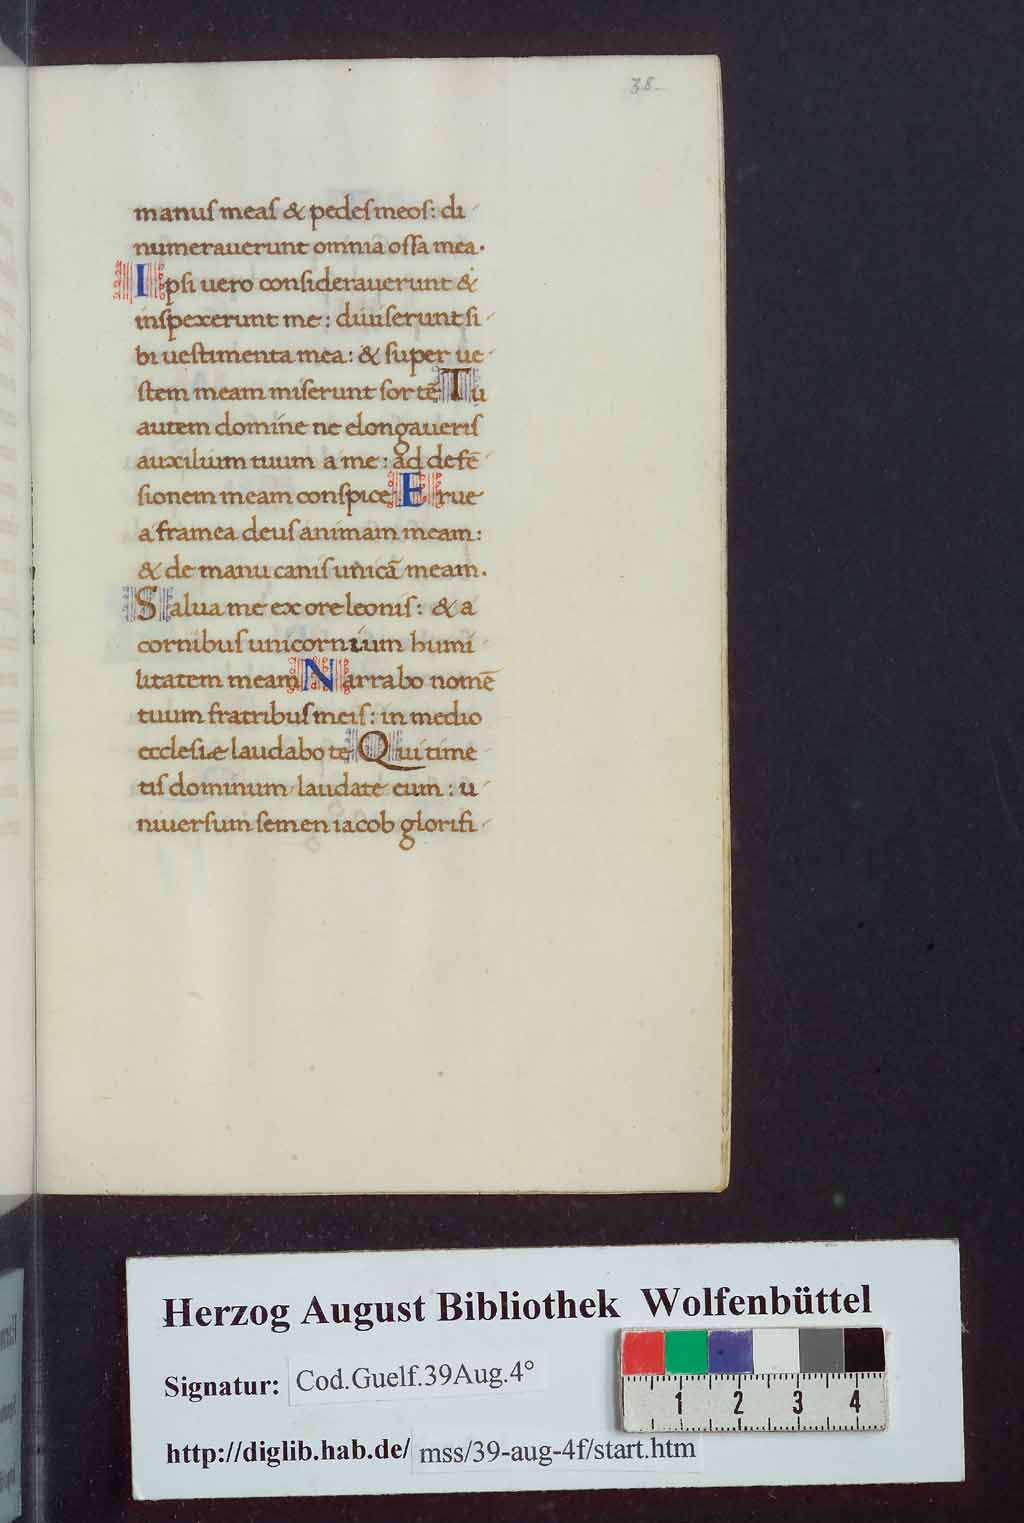 38
manuſ meaſ & pedeſ meoſ: di
numerauerunt omnia oſſa mea.
Ipſi uero conſiderauerunt &
inſpexerunt me: diuiſerunt ſi
bi ueſtimenta mea: & ſuper ue
ſtem meam miſerunt ſortē Tu
autem domine ne elongaueriſ
auxilium tuum a me: ad defē
ſionem meam conſpice Erue
a framea deuſ animam meam:
& de manu caniſ unicā meam.
Salua me ex ore leoniſ: & a
cornibuſ unicornium humi
litatem meam Narrabo nomē
tuum fratribuſ meiſ: in medio
eccleſiæ laudabo te Qui time
tiſ dominum laudate eum: u
niuerſum ſemen iacob glorifi
Herzog August Bibliothek Wolfenbüttel
Signatur: Cod.Guelf.39Aug.4°
1 2 3 4
http://diglib.hab.de/ mss/39-aug-4f/start.htm